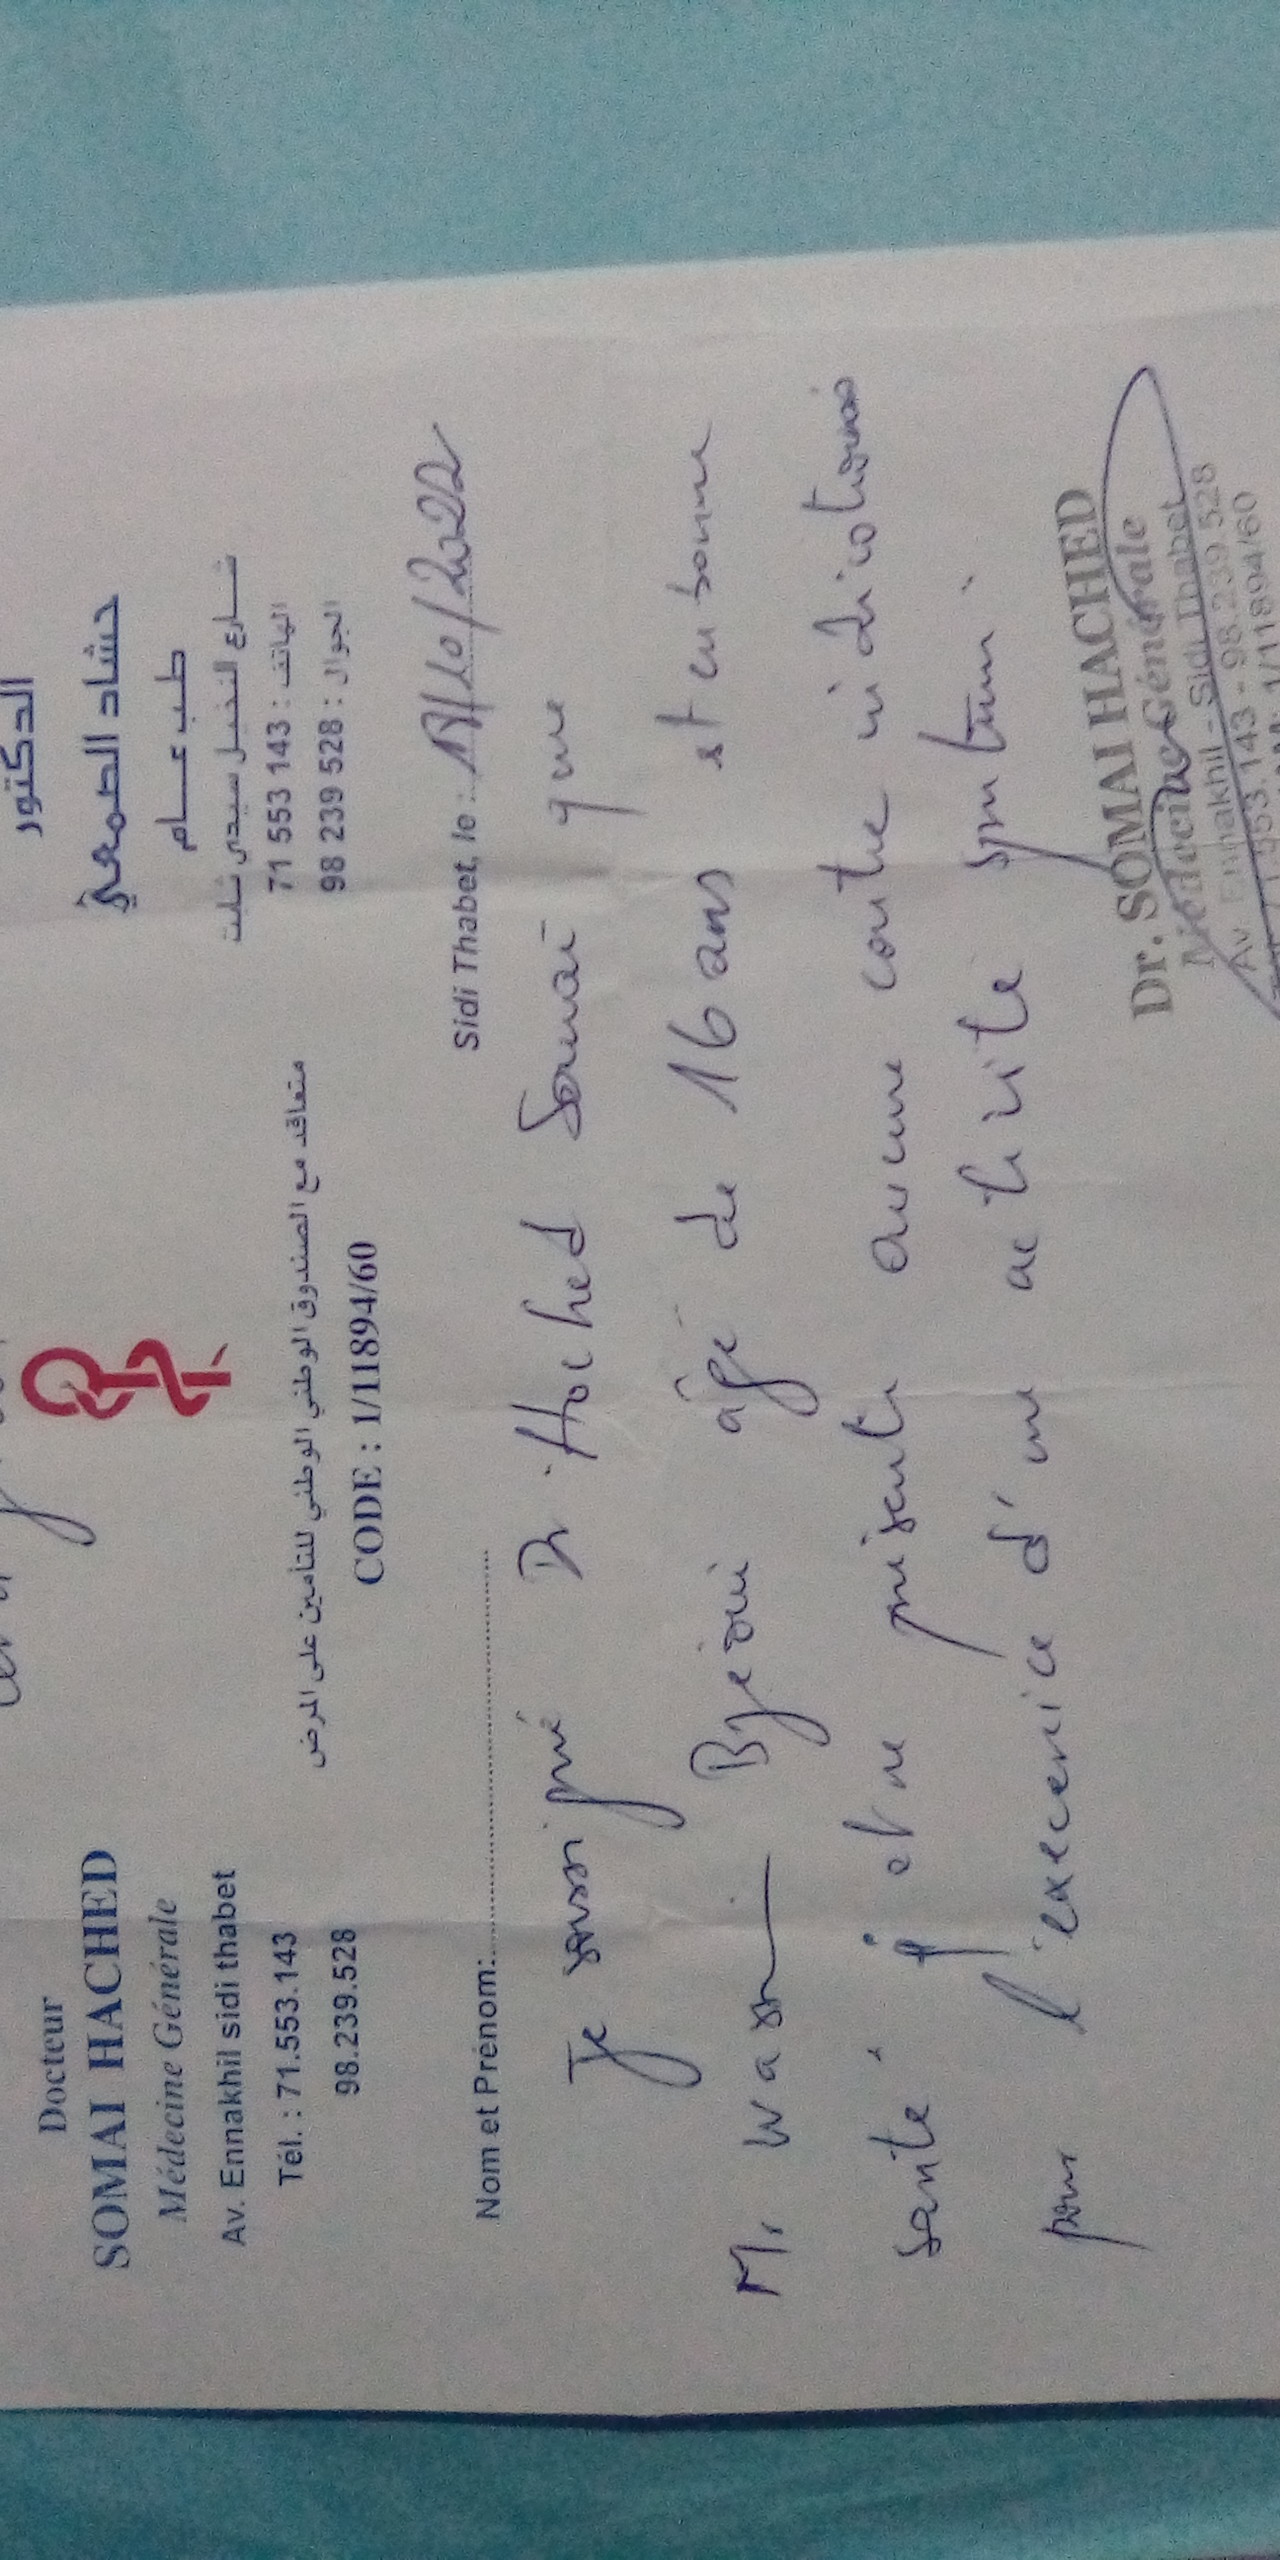 Docteur
SOMAI HACHED
Médecine Générale
Av. Ennakhil sidi thabet
Tél. : 71.553.143
98.239.528
متعاقد مع الصندوق الوطني الوطني للتأمين على المرض
CODE : 1/11894/60
الدكتور
حشاد الصمعي
طب عــام
شـارع النخيل سيدي ثـابت
الهاتف : 143 553 71
الجوال : 528 239 98
Sidi Thabet, le : /10/2022
Nom et Prénom:
Je soussigné Dr Hached Somai que
Mr Bjaoui âgé de 16 ans est en bonne
santé et ne présente aucune contre indications
pour l'exercice d'une activité sportive.
Dr. SOMAI HACHED
Médecine Générale
Av. Ennakhil - Sidi Thabet
71.553.143 - 98.239.528
1/11894/60